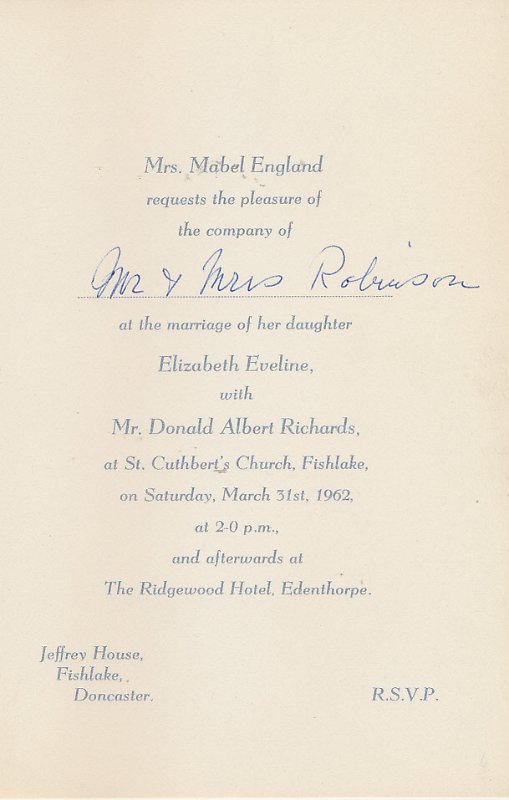 Mrs. Mabel England
requests the pleasure of
the company of
Mr & Mrs Robinson
at the marriage of her daughter
Elizabeth Eveline,
with
Mr. Donald Albert Richards,
at St. Cuthbert's Church, Fishlake,
on Saturday, March 31st, 1962,
at 2-0 p.m.,
and afterwards at
The Ridgewood Hotel, Edenthorpe.
Jeffrey House,
Fishlake,
Doncaster.
R.S.V.P.